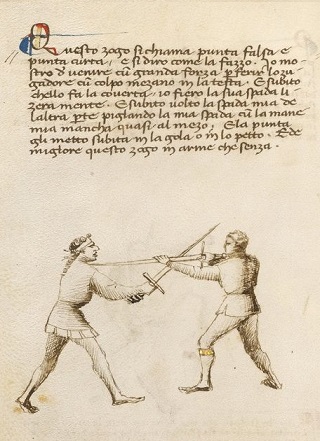 Questo zogo si chiama punta falsa e
punta curta, e si diro come la fazzo. Io mo
stro d' venire cũ granda forza p̱ ferir lo zu
gadore cũ colpo mezano in la testa. E subito
chello fa la coverta, io fiero la sua spada li
zera mente. E subito volto la spada mia de
laltra p̱te piglando la mia spada cũ la mane
mia mancha quasi al mezo. E la punta
gli metto subita in la gola o in lo petto. Ede
migliore questo zogo in arme che senza.